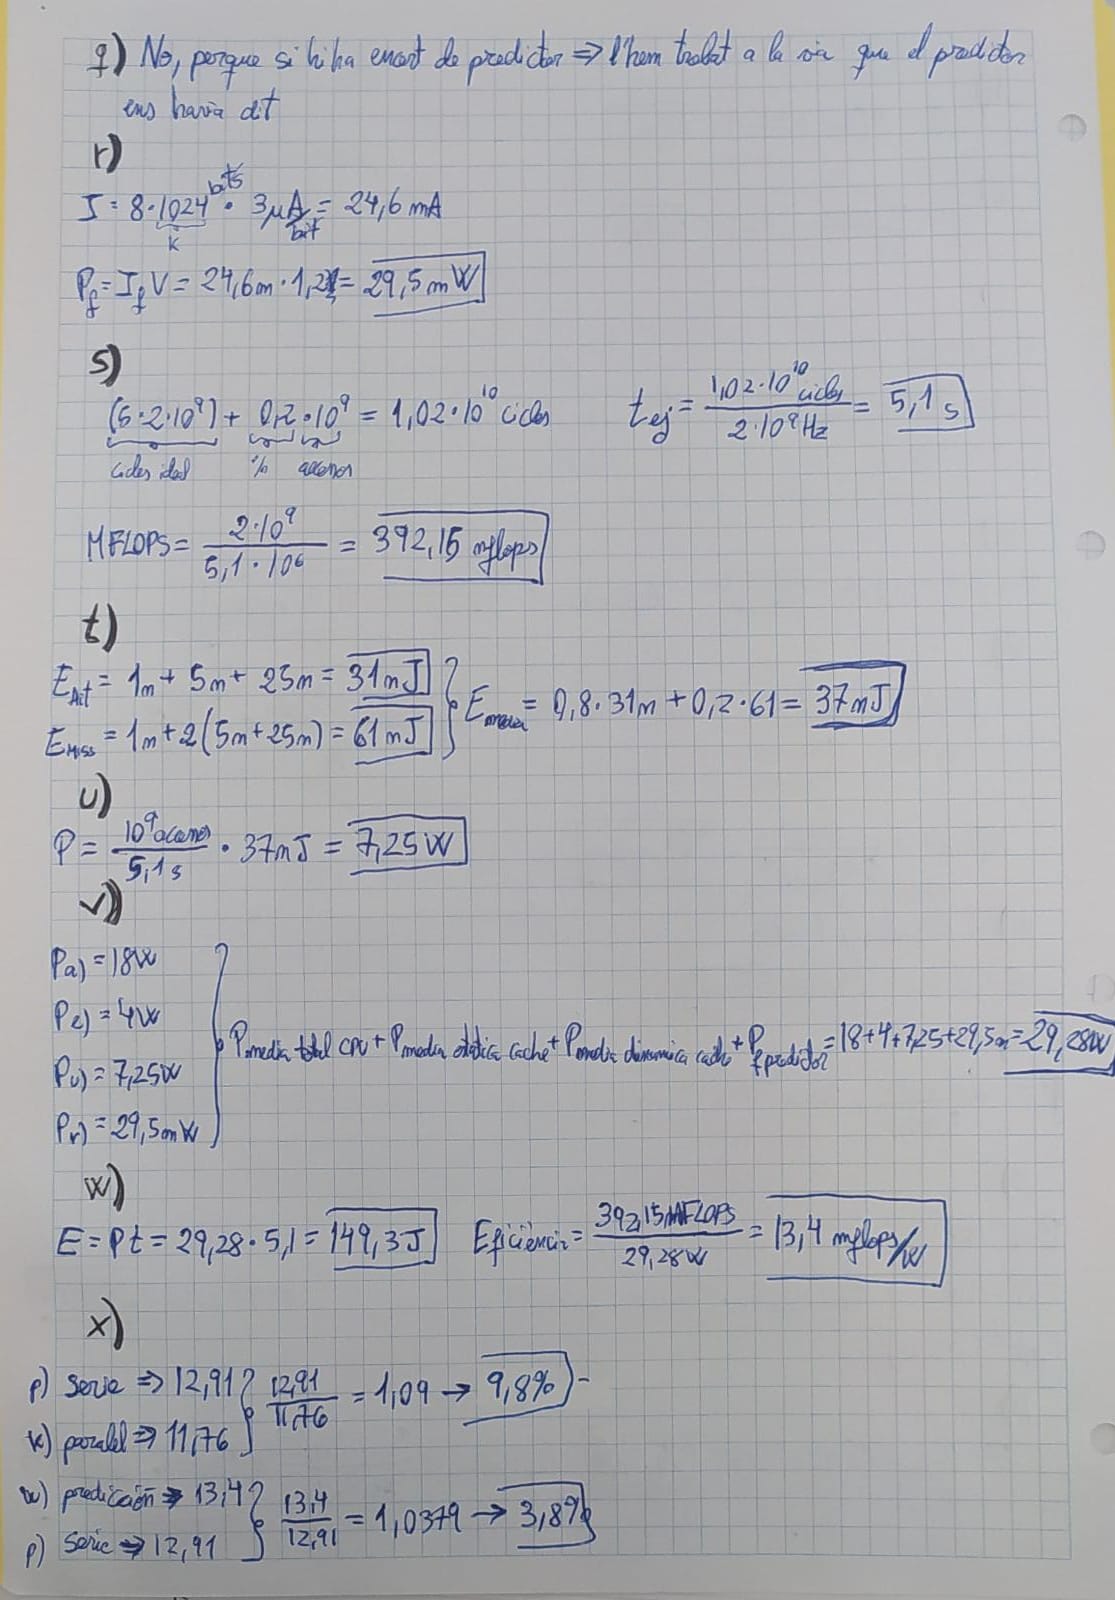 q) No, perque si hi ha encert de predictor ⇒ l'hem trobat a la via que el predictor
ens havia dit
r)
I = 8·1024 bits · 3μA/bit = 24,6 mA
k
Pf = If V = 24,6m · 1,2 = 29,5 mW
s)
(5·2·10⁹) + 0,2·10⁹ = 1,02·10¹⁰ cicles
tej = 1,02·10¹⁰ cicles / 2·10⁹ Hz = 5,1 s
cicles ideal % accesos
MFLOPS = 2·10⁹ / 5,1·10⁶ = 392,15 mflops
t)
EHit = 1n + 5n + 25n = 31nJ
EMiss = 1n + 2(5n+25n) = 61nJ
Emedia = 0,8·31n + 0,2·61 = 37nJ
u)
P = 10⁹ accesos / 5,1 s · 37nJ = 7,25W
v)
Pa) = 18W
Pe) = 4W
Pu) = 7,25W
Pr) = 29,5mW
Pmedia total CPU + Pmedia estatica cache + Pmedia dinamica cache + Pf predictor = 18+4+7,25+29,5m = 29,28W
w)
E = Pt = 29,28·5,1 = 149,3J
Eficiència = 392,15 MFLOPS / 29,28W = 13,4 mflops/W
x)
p) serie ⇒ 12,91
k) paralel ⇒ 11,76
12,91 / 11,76 = 1,09 → 9,8%
w) predicción ⇒ 13,4
p) Serie ⇒ 12,91
13,4 / 12,91 = 1,0379 → 3,8%